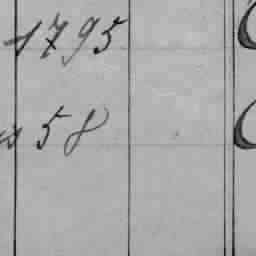 1795
58